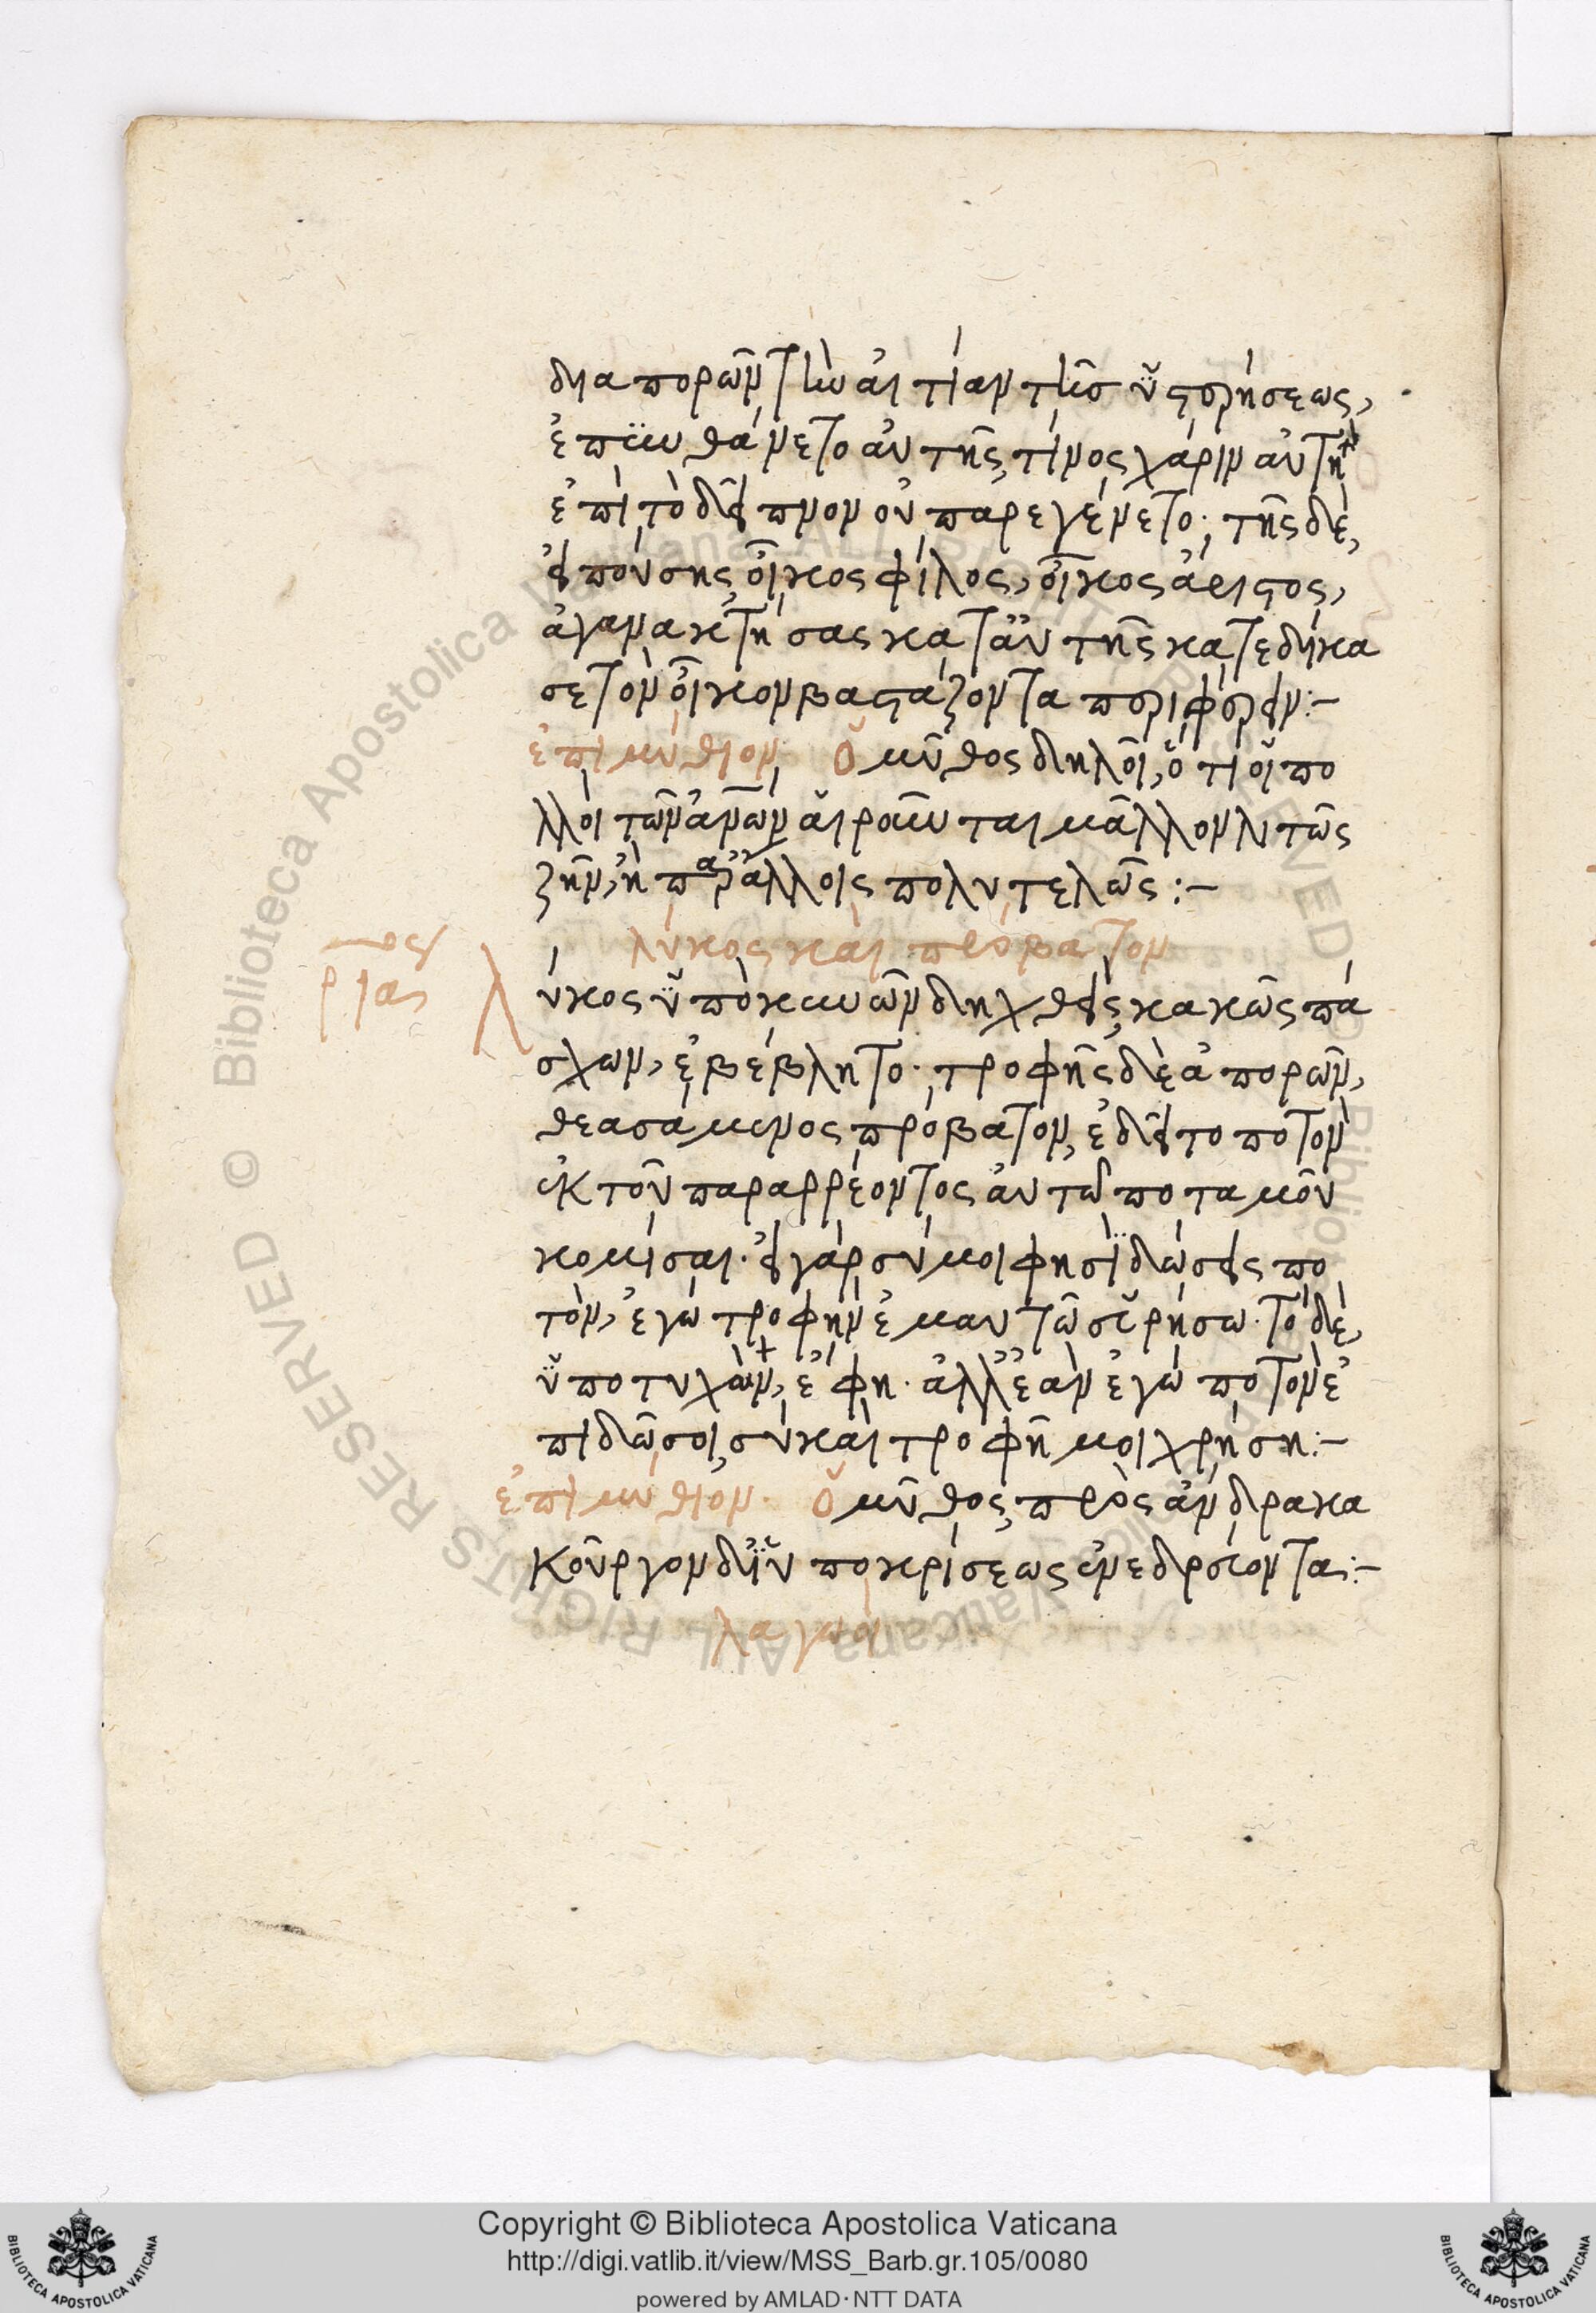 διαπορῶν τὴν αἰτίαν τῆσ ὑστερήσεως,
ἐπυνθάνετο αὐτῆς, τίνος χάριν αὐτὴ
ἐπὶ τὸ δεῖπνον οὐ παρεγένετο· τῆς δὲ,
εἰπούσης, οἶκος φίλος, οἶκος ἄριστος,
ἀγανακτήσας κατ' αὐτῆς κατεδίκα
σε τὸν οἶκον βαστάζοντα περιφέρειν:-
ἐπιμύθιον Ὁ μῦθος δηλοῖ, ὅτι οἱ πο
λλοὶ τῶν ἀνῶν αἱροῦνται μᾶλλον λιτῶς
ζῆν, ἢ παρ' ἄλλοις πολυτελῶς:-
λύκος καὶ πρόβατον
λύκος ὑπὸ κυνῶν δηχθεὶς, κακῶς πά
σχων, ἐβέβλητο· τροφῆς δὲ ἀπορῶν,
θεασάμενος πρόβατον, ἐδεῖτο ποτὸν
ἐκ τοῦ παραρρέοντος αὐτῶ ποταμοῦ
κομίσαι· εἰ γὰρ σύ μοι φησὶ δώσεις πο
τὸν, ἐγὼ τροφὴν ἐμαυτῶ εὑρήσω· τὸ δὲ,
ὑποτυχὼν, ἔφη· ἀλλ' ἐὰν ἐγὼ ποτὸν ἐ
πιδῶ σοι, σὺ καὶ τροφῆ μοι χρήση:-
ἐπιμύθιον· Ὁ μῦθος, πρὸς ἄνδρα κα
κοῦργον δι' ὑποκρίσεως ἐνεδρεύοντα:-
λαγωοὶ
Copyright © Biblioteca Apostolica Vaticana
http://digi.vatlib.it/view/MSS_Barb.gr.105/0080
powered by AMLAD·NTT DATA